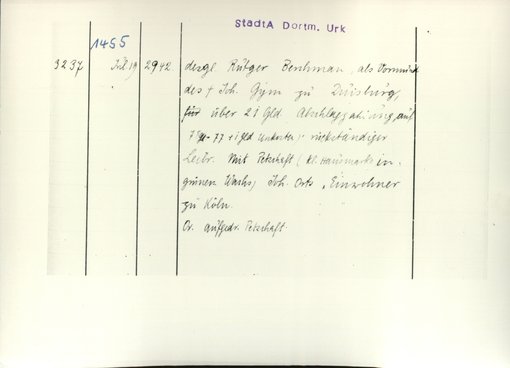 StadtA Dortm. Urk
1455
3237 Juli 19 2942 desgl. Rütger Benhman, als Vormund
des † Joh. Gym zu Duisburg,
für über 21 Gld. Abschlagzahlung auf
77 + 1 Gld rückständiger
Leibr. Mit Petschaft (kl. Hausmarke in
grünem Wachs) Joh. Orts, Einwohner
zu Köln.
Or. aufgedr. Petschaft.